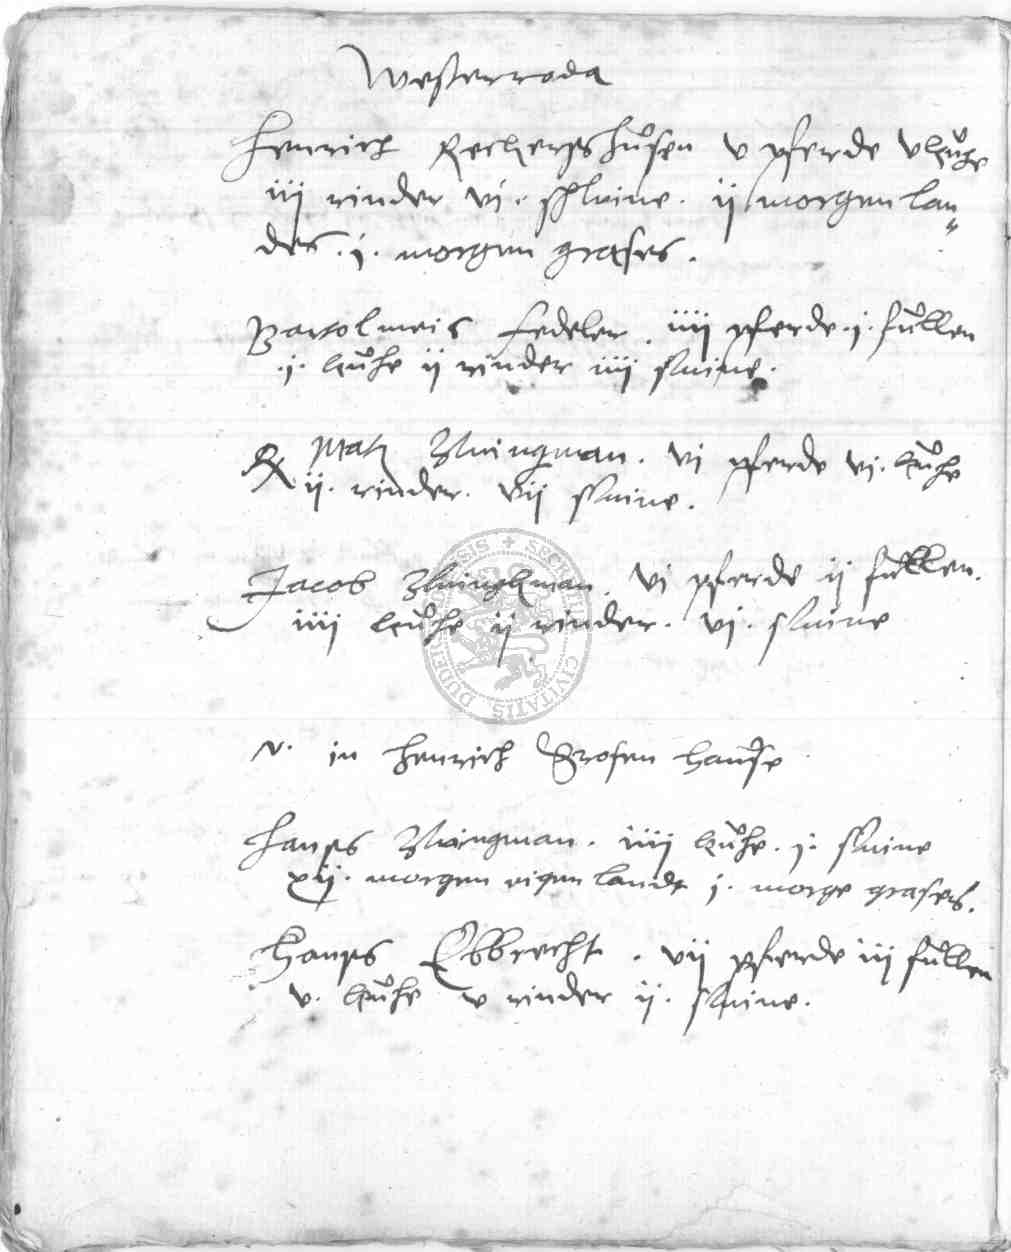 Westerroda
Henrich Rechershusen v pferde v kuhe
iij rinder vi. schwine. ij morgen lan
des .j. morgen grases.
Bartolmeis Fedeler. iiij pferde .j. fullen
.j. kuhe ij rinder iiij swine.
Matz Zwingman. vi pferde vj. kuhe
ij. rinder. vij swine.
Jacob Zwingkman. vj pferde ij fullen.
iiij kuhe ij rinder. vj. swine
v. in Henrich Grosen hause
Hanss Zwingman. iiij kuhe. j. swine
xij. morgen eigen lande j. morge grases.
Hanss Ebbrecht. vij pferde iij fullen
v. kuhe v rinder ij. swine.
SECRE CIVITATIS DUDER SIS